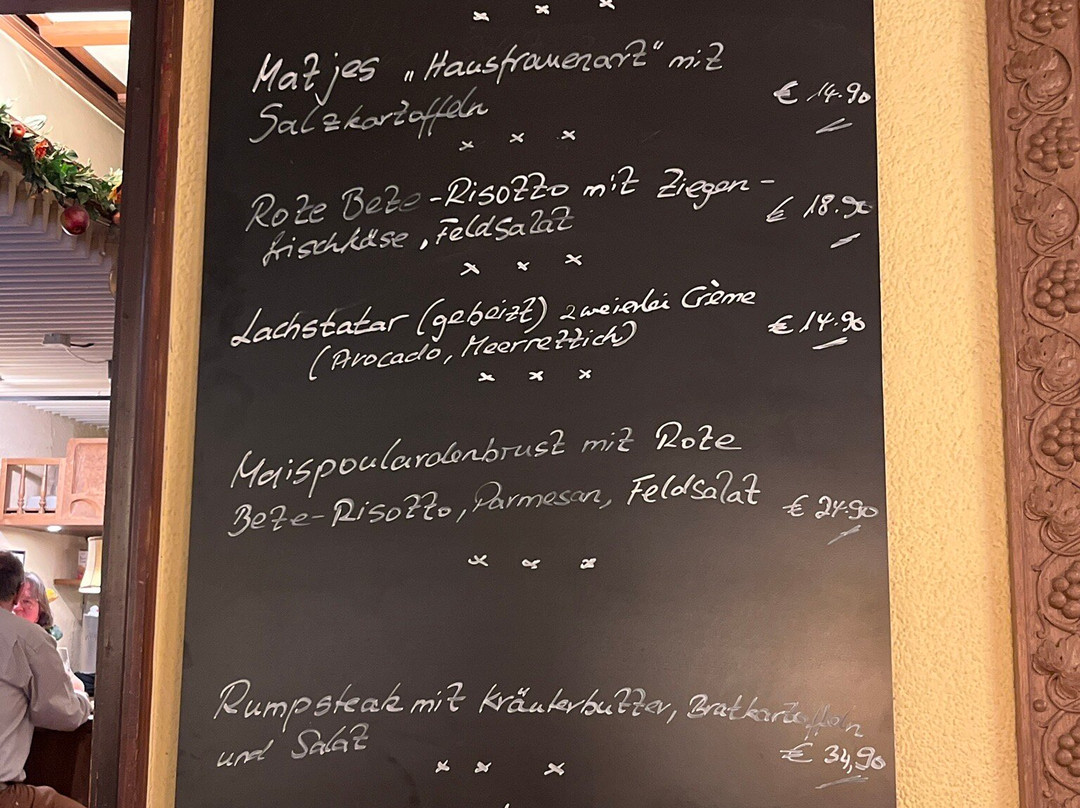 x x x
Matjes „Hausfrauenart" mit
€ 14.90
Salzkartoffeln
x x x
Rote Bete-Risotto mit Ziegen-
€ 18.90
frischkäse, Feldsalat
x x x
Lachstatar (gebeizt) zweierlei Crème
€ 14.90
(Avocado, Meerrettich)
x x x
Maispoulardenbrust mit Rote
Bete-Risotto, Parmesan, Feldsalat € 24.90
x x x
Rumpsteak mit Kräuterbutter, Bratkartoffeln
und Salat € 34,90
x x x